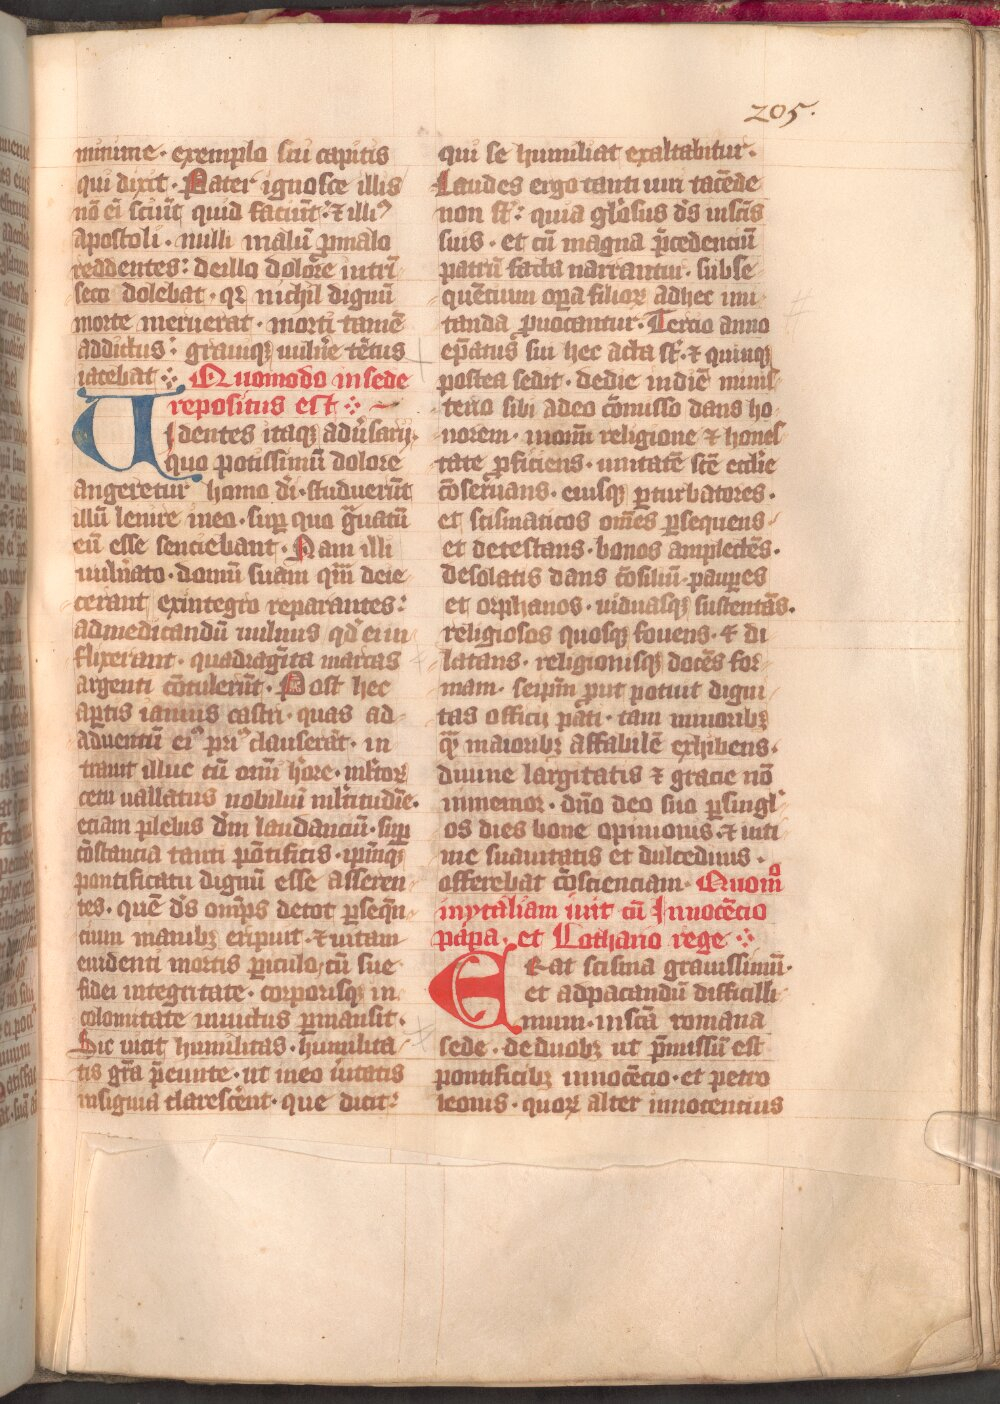 205.
minime · exemplo sui capitis
qui dixit · Pater ignosce illis
nō eī sciūt quid faciūt : ⁊ illiꝰ
apostoli · nulli malū ꝓ malo
reddentes : de illo dolore intrī
seco dolebat · qꝛ nichil dignū
morte meruerat · morti tamē
addictus : grauiqꝫ uulne tētus
iacebat ⁘ Quomodo in sede
repositus est ⁘
Uidentes itaqꝫ adūsarij ·
quo potissimū dolore
angeretur homo dī · studuerūt
illū lenire in eo · suꝑ quo g̃uatū
eū esse sentiebant · Nam illi
uulnato · domū suam qm̄ deie
cerant ex integro reparantes :
ad medicandū uulnus qd̄ ei in
flixerant · quadragīta marcas
argenti cōtulerūt · Post hec
aꝑtis ianuis castri · quas ad
aduentū eiꝰ priꝰ clauserāt · in
trauit illuc cū om̄i hōre · mltoꝝ
cetu uallatus nobiliū mltitudīe ·
etiam plebis dm̄ laudanciū · suꝑ
cōstancia tanti pōtificis · ip̄mqꝫ
pontificatu dignū esse asseren
tes · quē ds̄ om̄ps de tot ꝑseqū
tium manibꝫ eripuit · ⁊ uitam
euidenti mortis ꝑiculo · cū sue
fidei integritate · corporisqꝫ in
colomitate inuictus ꝑmansit ·
Sic uicit humilitas · humilita
tis grā p̄eunte · ut in eo ūtatis
insignia clarescēnt · que dicit :
qui se humiliat exaltabitur ·
Laudes ergo tanti uiri tacēde
non st̄ : quia gl̄osus ds̄ in scīs
suis · et cū magna p̄cedenciū
patrū facta narrantur · subse
quētium oꝑa filioꝝ ad hec imi
tanda ꝓuocantur · Tercio anno
ep̄atus sui hec acta st̄ · ⁊ quinqꝫ
postea sedit · de die in diē minis
terio sibi a deo cōmisso dans ho
norem · morū religione ⁊ hones
tate ꝓficiens · unitatē scē eccl̄ie
cōseruans · eiusqꝫ ꝑturbatores ·
et scismaticos om̄es ꝑsequens
et detestans · bonos amplectēs ·
desolatis dans cōsiliū · pauꝑes
et orphanos · uiduasqꝫ sustentās ·
religiosos quosqꝫ fouens · ⁊ di
latans · religionisqꝫ docēs for
mam · seip̄m ꝓut potuit digni
tas officij pati · tam minoribꝫ
qm̄ maioribꝫ affabilē exhibens ·
diuine largitatis ⁊ gracie nō
inmemor · dn̄o deo suo ꝑ singl
os dies bone opinionis · ⁊ inti
me suauitatis et dulcedinis ·
offerebat cōscienciam · Quomᵒ
in ytaliam iuit cū Innocēcio
papa · et Lothario rege ⁘
Erat scisma grauissimū ·
et ad pacandū difficilli
mum · in scā romana
sede · de duobꝫ ut p̄missū est
pontificibꝫ innocēcio · et petro
leonis · quoꝝ alter innocentius